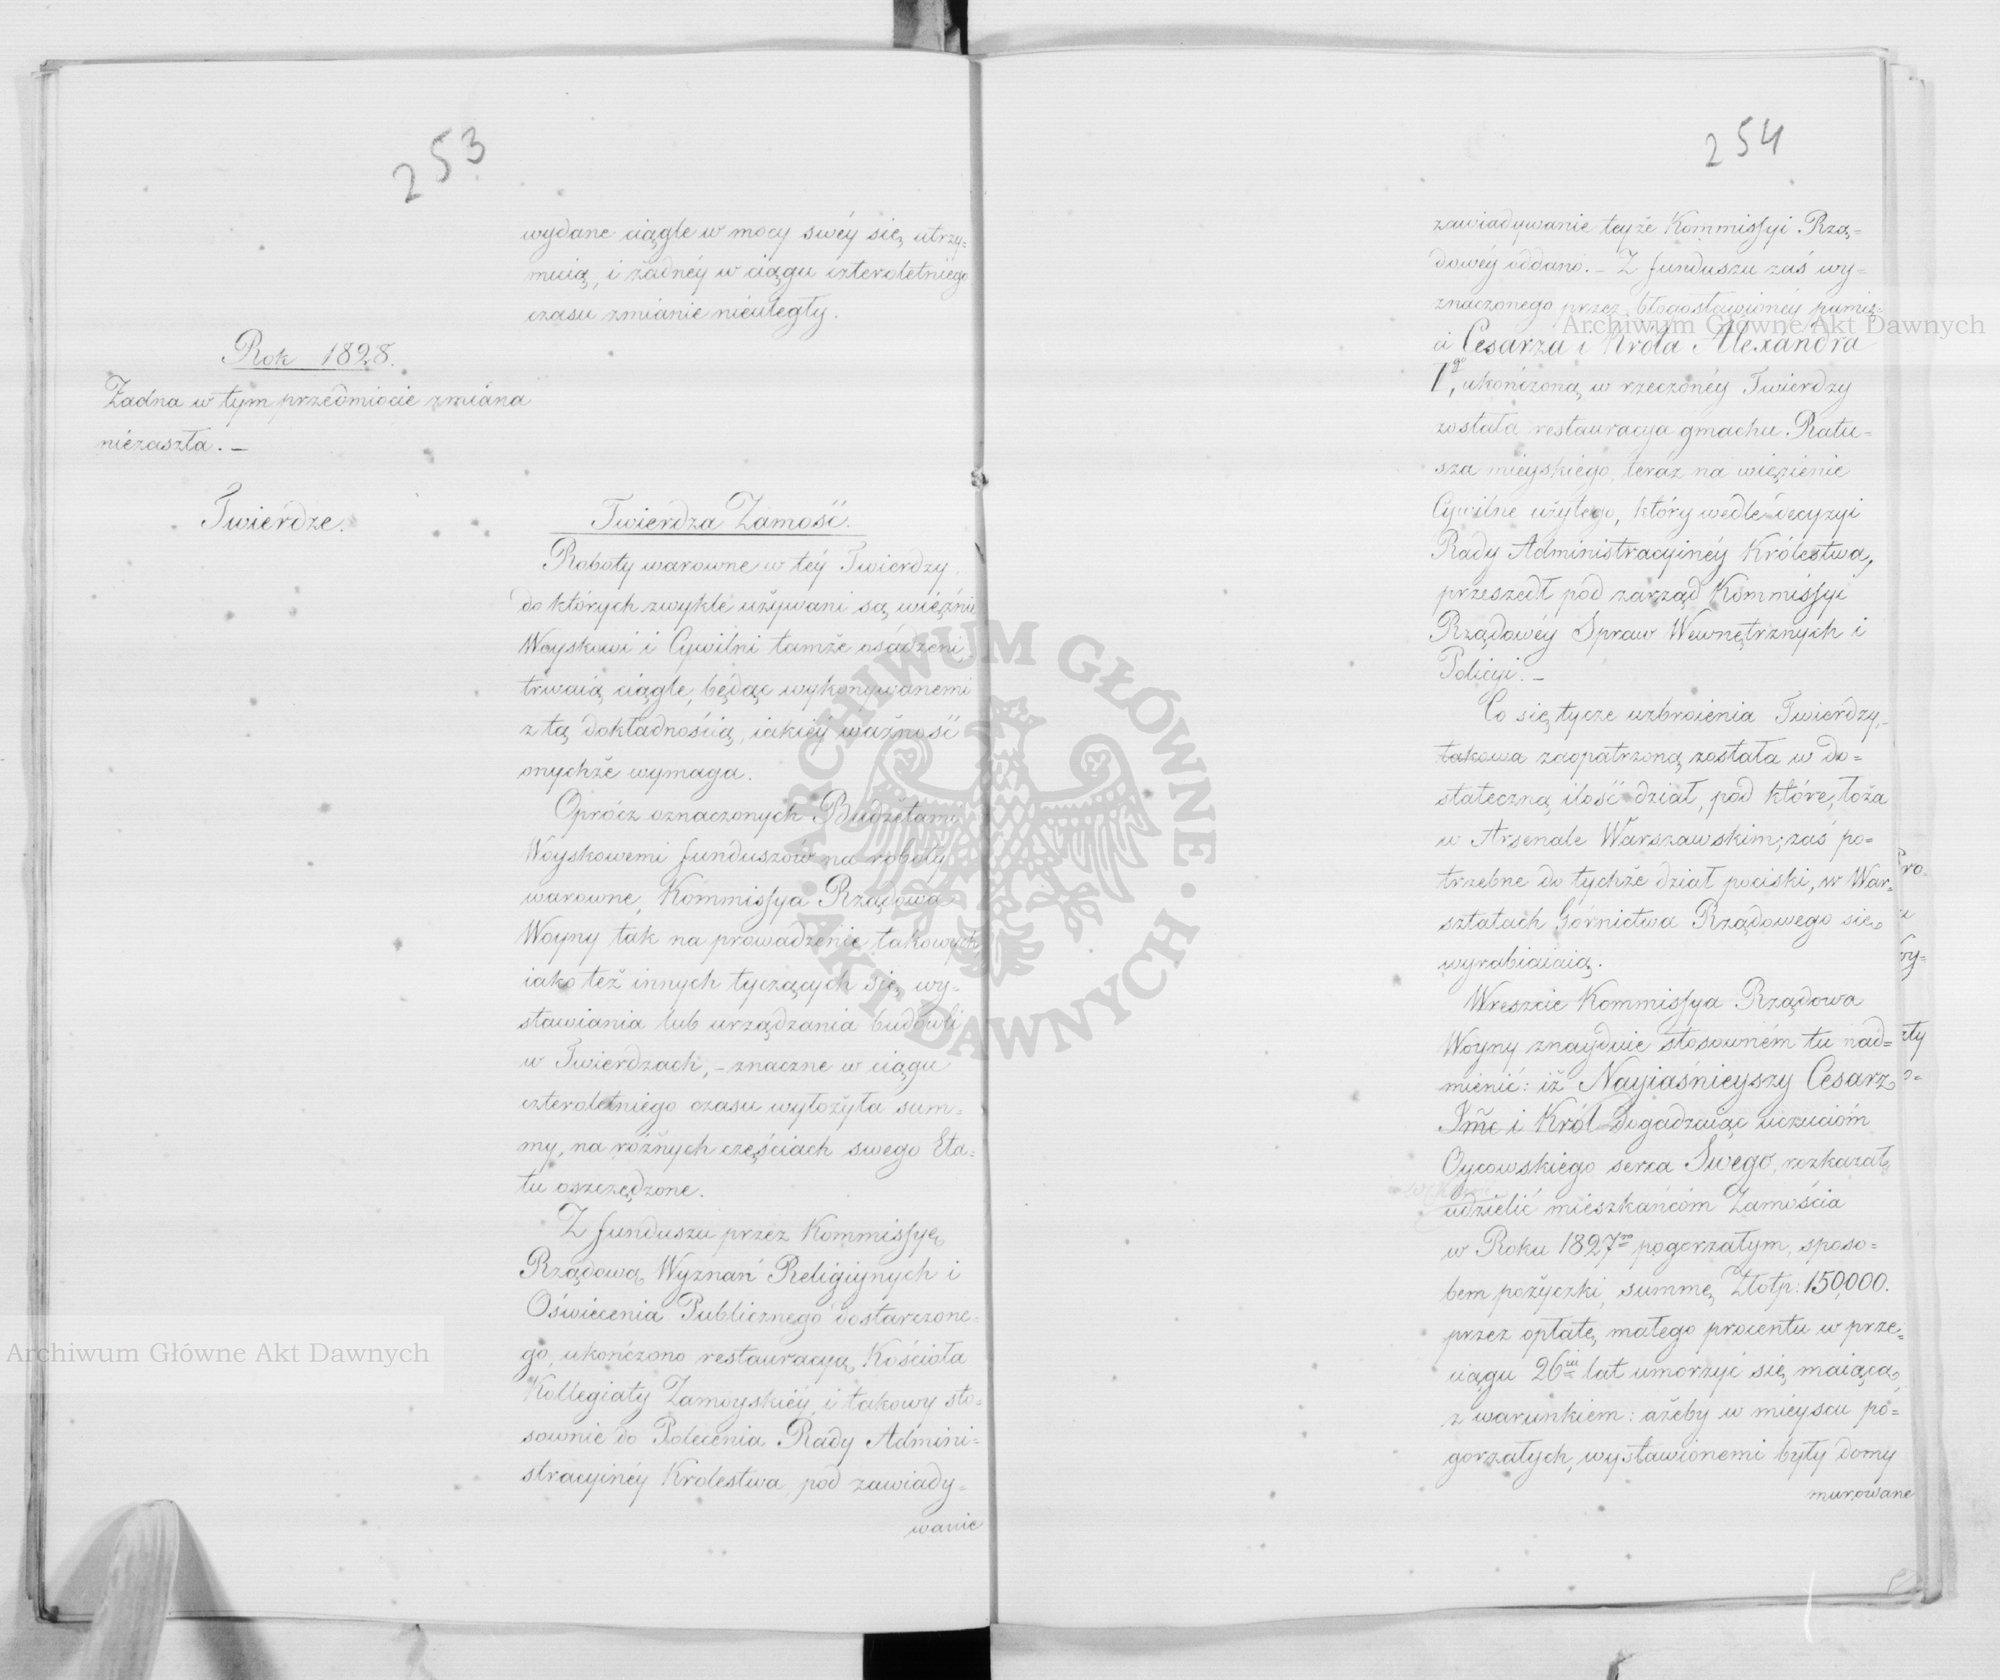 253
wydane ciągle w mocy swéy się utrzy=
muią, i żadnéy w ciągu czteroletniego
czasu zmianie nieuległy.
Rok 1828.
Żadna w tym przedmiocie zmiana
niezaszła. —
Twierdze.
Twierdza Zamość.
Roboty warowne w téy Twierdzy,
do których zwykle używani są więźnie
Woyskowi i Cywilni tamże osadzeni,
trwaią ciągle, będąc wykonywanemi
z tą dokładnością, iakiéy ważność
onychże wymaga.
Oprócz oznaczonych Budżetami
Woyskowemi funduszów na roboty
warowne, Kommissya Rządowa
Woyny tak na prowadzenie takowych
iako też innych tyczących się wy=
stawiania lub urządzania budowli
w Twierdzach, – znaczne w ciągu
czteroletniego czasu wyłożyła sum=
my, na różnych częściach swego Eta=
tu oszczędzone.
Z funduszu przez Kommissyę
Rządową Wyznań Religiynych i
Oświecenia Publicznego dostarczone=
go, ukończono restauracyą Kościoła
Kollegiaty Zamoyskiéy, i takowy sto=
sownie do Polecenia Rady Admini=
stracyinéy Krolestwa pod zawiady=
wanie
254
zawiadywanie teyże Kommissyi Rzą=
dowéy oddano. – Z funduszu zaś wy=
znaczonego przez błogosławionéy pamię=
ci Cesarza i Króla Alexandra
1go, ukończoną w rzeczonéy Twierdzy
została restauracya gmachu Ratu=
sza mieyskiego, teraz na więzienie
Cywilne użytego, który wedle decyzyi
Rady Administracyinéy Królestwa,
przeszedł pod zarząd Kommissyi
Rządowéy Spraw Wewnętrznych i
Policyi. –
Co się tycze uzbroienia Twierdzy,
takowa zaopatrzoną została w do=
stateczną ilość dział, pod które, łoża
w Arsenale Warszawskim; zaś po=
trzebne do tychże dział pociski, w War=
sztatach Górnictwa Rządowego się
wyrabiaią.
Wreszcie Kommissya Rządowa
Woyny znayduie stosowném tu nad=
mienić: iż Nayiaśnieyszy Cesarz
Jmć i Król dogadzaiąc uczucióm
Oycowskiego serca Swego, rozkazał
udzielić mieszkańcóm Zamościa
w Roku 1827m pogorzałym, sposo=
bem pożyczki, summę Złotp: 150,000.
przez opłatę małego procentu w prze=
ciągu 26iu lat umorzyć się maiącą,
z warunkiem: ażeby w mieyscu po=
gorzałych, wystawionemi były domy
murowane
Archiwum Główne Akt Dawnych
Archiwum Główne Akt Dawnych
ARCHIWUM GŁÓWNE AKT DAWNYCH